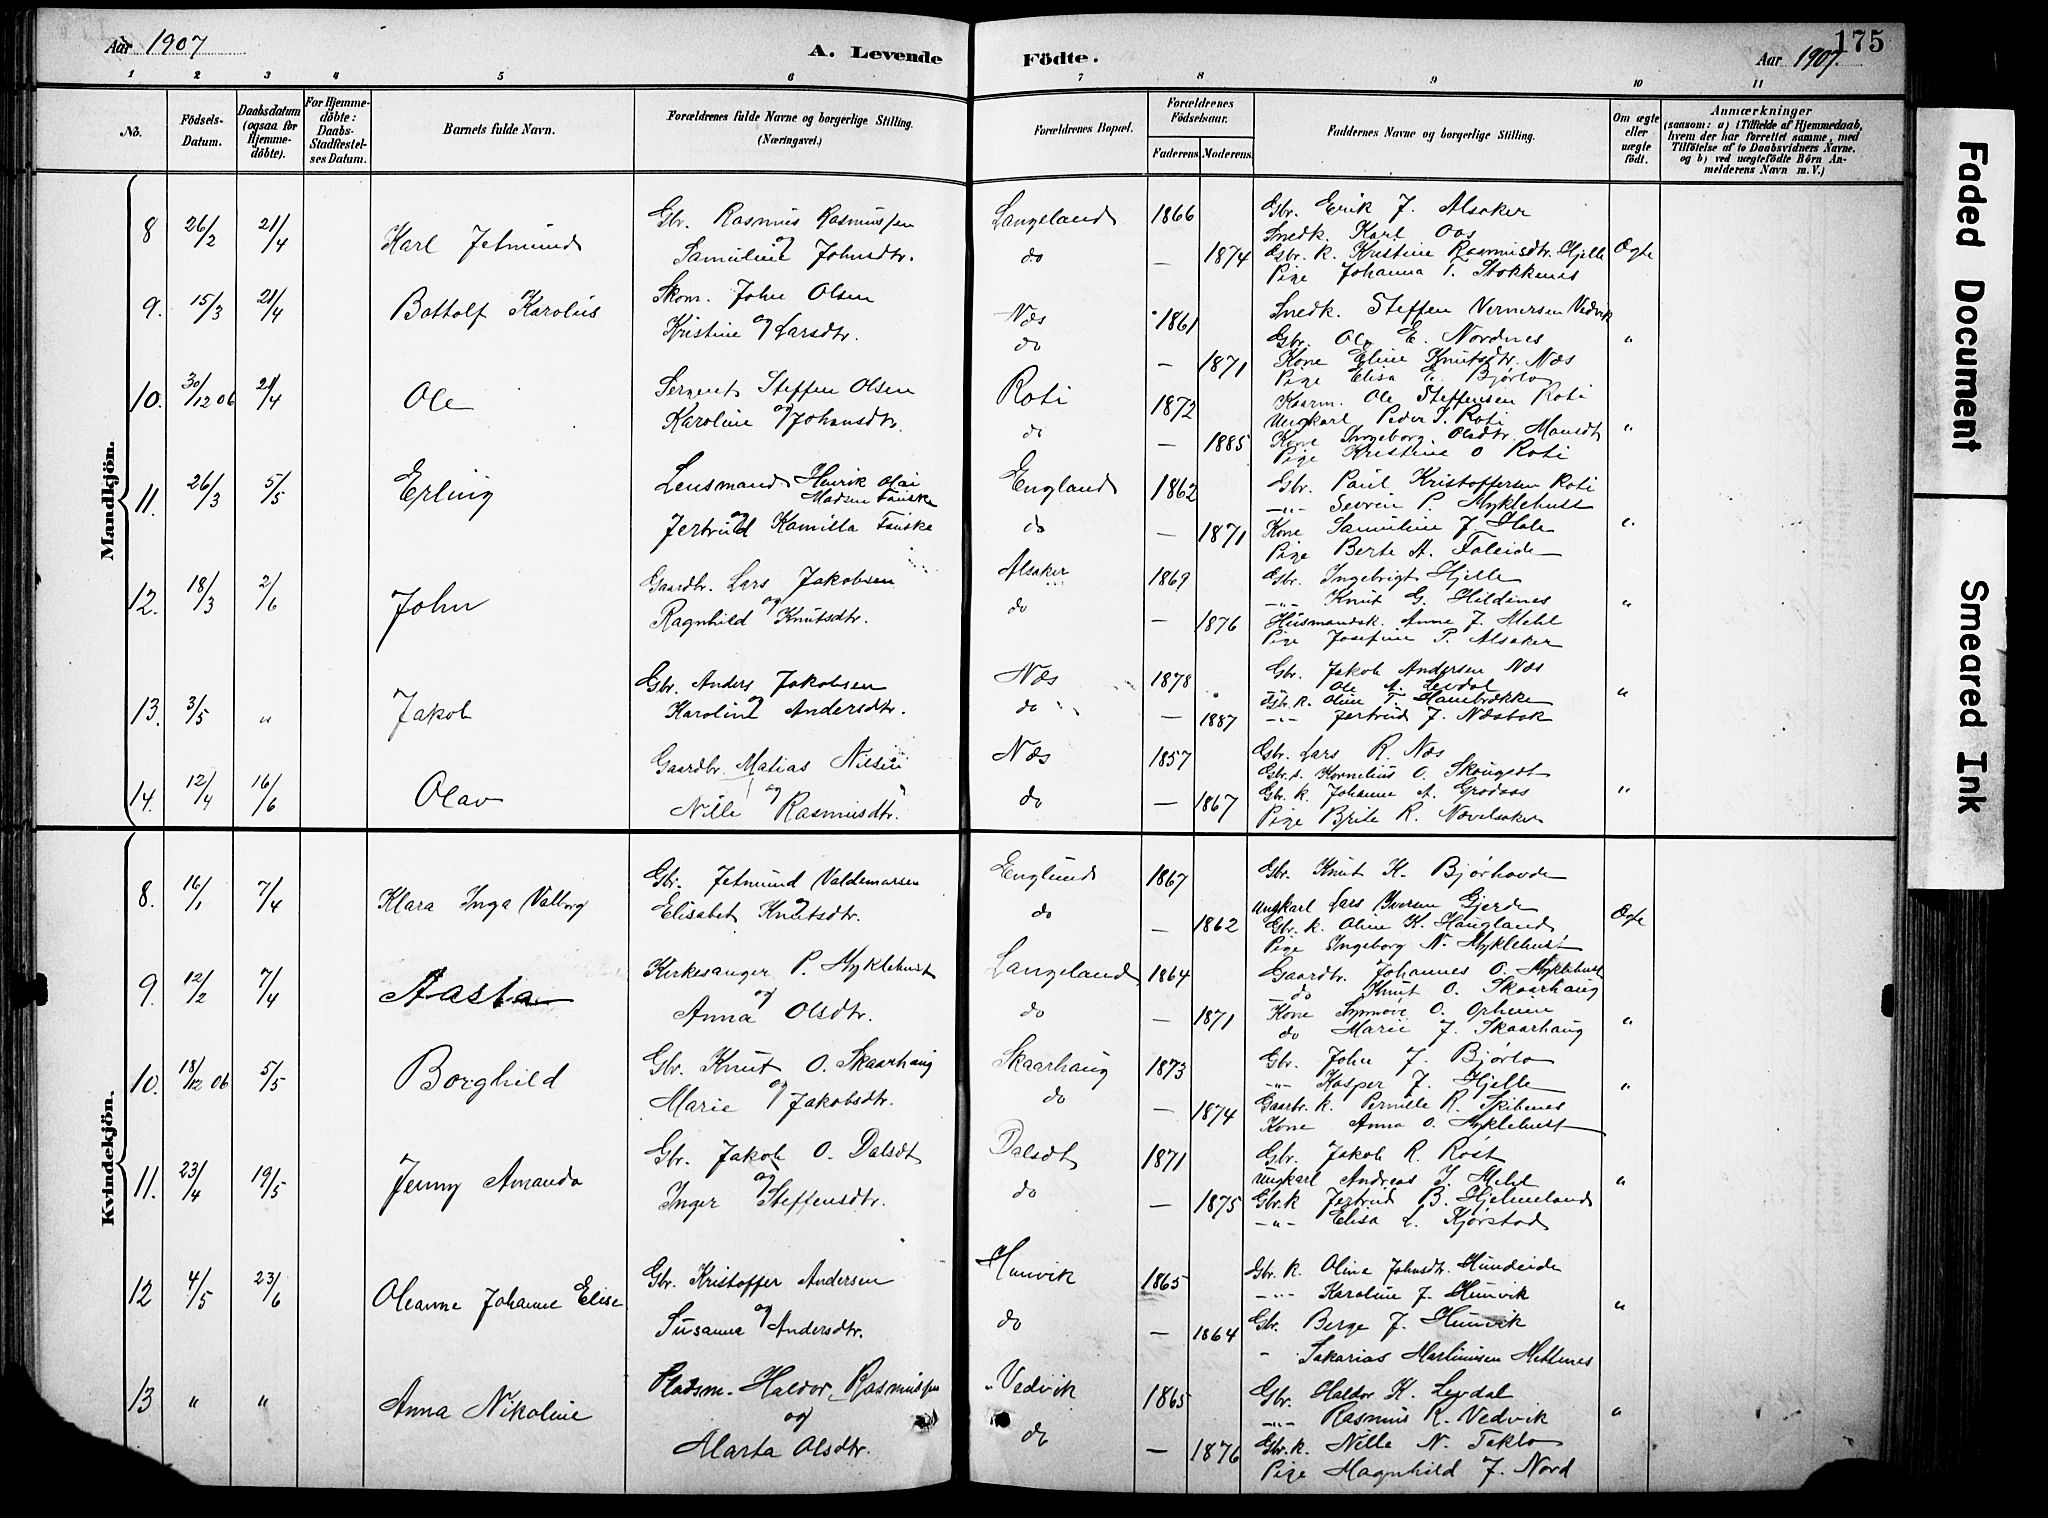 Aar 1907
A. Levende
Födte.
Aar 1907.
175
1 2 3 4 5 6 7 8 9 10 11
No.
Födsels-
Datum.
Daabsdatum
(ogsaa for
Hjemme-
döbte).
For Hjemme-
döbte:
Daabs-
Stadfæstel-
ses Datum.
Barnets fulde Navn.
Forældrenes fulde Navne og borgerlige Stilling.
(Næringsvei.)
Forældrenes Bopæl.
Forældrenes
Födselsaar.
Faderens. Moderens.
Faddernes Navne og borgerlige Stilling.
Om ægte
eller
uægte
födt.
Anmærkninger
(saasom: a) i Tilfælde af Hjemmedaab,
hvem der har forrettet samme, med
Tilföielse af to Daabsvidners Navne.
og b) ved uægtefödte Börn An-
melderens Navn m. V.)
Mandkjön.
8 26/2 21/4 Karl Jetmund
Gbr. Rasmus Rasmussen
og
Samuline Johnsdtr.
Langeland 1866
do — 1874
Gbr. Erik J. Alsaker
Snedk. Karl Aas
Gbr. k. Kristine Rasmusdtr. Hjelle
Pige Johanna T. Stokkenes
Ægte
9. 15/3 21/4 Battolf Karolus
Skom. John Olsen
Kristine og Larsdtr.
Næs 1861
do — 1871
Snedk. Steffen Vernersen Vedvik
Gbr. Ole E. Nordnes
Kone Eline Knutsdtr. Næs
Pige Elisa E. Bjørlo
"
10. 30/12 06 21/4 Ole
Sergent Steffen Olsen
Karoline og Johansdtr.
Roti 1872
do — 1885
Kaarm. Ole Steffensen Roti
Ungkarl Peder S. Roti
Kone Ingeborg Olsdtr. Mansdt
Pige Kristine O Roti
"
11. 26/3 5/5 Erling
Lensmand Henrik Olai
Madsen Fauske
og
Jertrud Kamilla Fauske
England 1862
do — 1871
Gbr. Paul Kristoffersen Roti
—"— Severin P. Myklebust
Kone Samuline J. Hole
Pige Berte A. Faleide
"
12. 18/3 2/6 John
Gaardbr. Lars Jakobsen
og
Ragnhild Knutsdtr.
Alsaker 1869
do — 1876
Gbr. Ingebrigt Hjelle
—"— Knut G. Hildenes
Husmandsk. Anne J. Mehl
Pige Josefine P. Alsaker
"
13. 3/5 " Jakob
Gbr. Anders Jakobsen
og
Karoline Andersdtr.
Næs 1878
do — 1887
Gbr. Jakob Andersen Næs
Ole A. Levdal
Gbr. k. Oline T. Hamebrække
—"— Jertrud J. Næsbak
"
14. 12/4 16/6 Olav
Gaardbr. Matias Nilsen
og
Nille Rasmusdtr.
Næs 1857
do — 1867
Gbr. Lars R. Næs
Gbr. s. Kornelius O. Skaugedt
Gbr. k. Johanne A. Grodaas
Pige Brite R. Navelsaker
"
Kvindekjön.
8. 16/1 7/4 Klara Inga Valborg
Gbr. Jetmund Valdemarsen
og
Elisabet Knutsdtr.
Englund 1867
do — 1862
Gbr. Knut K. Bjørhovde
Ungkarl Lars Iversen Gjerde
Gbr. k. Oline K. Haugland
Pige Ingeborg N. Myklebust
Ægte
9. 12/2 7/4 Aasta
Kirkesanger P. Myklebust
og
Anna Olsdtr.
Langeland 1864
do — 1871
Gaardbr. Johannes O. Myklebust
do Knut O. Skaarhaug
Kone Synnøve O. Opheim
do Marie J. Skaarhaug
"
10. 18/12 06 5/5 Borghild
Gbr. Knut O. Skaarhaug
og
Marie Jakobsdtr.
Skaarhaug 1873
do — 1874
Gbr. John J. Bjørlo
—"— Kasper J. Hjelle
Gaarbr. k. Pernille R. Skibenes
Kone Anna O. Myklebust
"
11. 23/4 19/5 Jenny Amanda
Gbr. Jakob O. Dalsdt
og
Inger Steffensdtr.
Dalsdt 1871
do — 1875
Gbr. Jakob R. Røst
Ungkarl Andreas J. Mehl
Gbr. k Jertrud B. Hjelmeland
—"— Elisa L. Kjørstad
"
12 4/5 23/6 Oleanne Johanne Elise
Gbr. Kristoffer Andersen
og
Susanna Andersdtr.
Hunvik 1865
do — 1864
Gbr. k. Olina Johnsdtr. Hundeide
—"— Karoline J. Hunvik
Gbr. Berge J. Hunvik
" Sakarias Martinusen Hettenes
"
13 " " Anna Nikoline
Pladsm. Haldor Rasmussen
og
Marta Olsdtr.
Vedvik 1865
do — 1876
Gbr. Haldor K. Levdal
—"— Rasmus R. Vedvik
Gbr. k. Nille N. Teklo
Pige Magnhild J. Nord
"
Faded Document
Smeared Ink